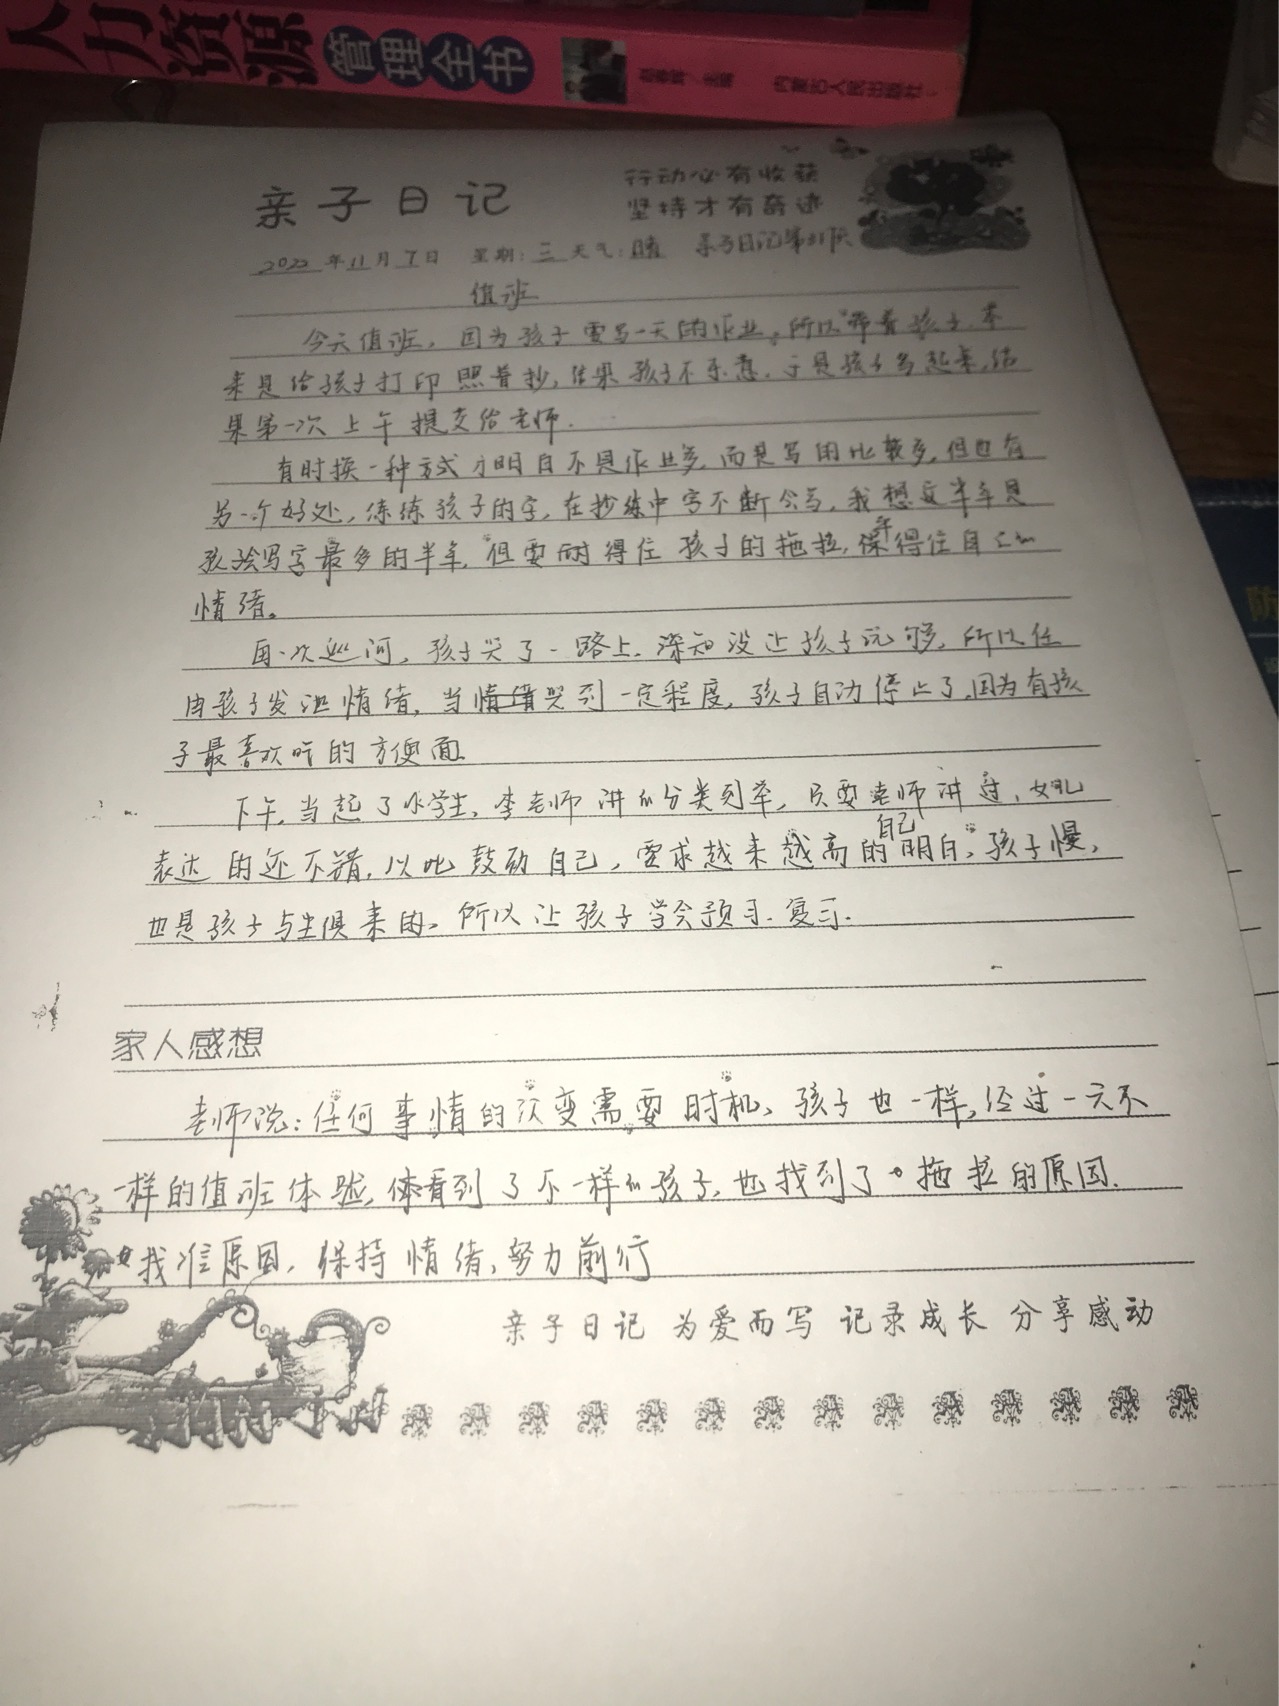 人力资源管理全书 主编 内蒙古人民出版社
行动必有收获
亲子日记
坚持才有奇迹
2022年11月7日 星期:三 天气:晴 亲子日记第
值班
今天值班,因为孩子要写一天的作业,所以带着孩子.本
来是给孩子打印照着抄,结果孩子不乐意.于是孩子写起来,结
果第一次上午提交给老师.
有时换一种方式才明白不是作业多,而是写的比较多,但也有
另一个好处,练练孩子的字,在抄练中字不断公写,我想这半年是
孩子写字最多的半年,但要耐得住孩子的拖拉,保得住自己的
情绪。
再一次巡河,孩子哭了一路上.深知没让孩子玩够,所以任
由孩子发泄情绪,当哭到一定程度,孩子自动停止了,因为有孩
子最喜欢吃的方便面.
下午,当起了小学生,李老师讲的分类列举,只要老师讲过,女儿
表达的还不错,以此鼓励自己,要求越来越高的自己明白,孩子慢,
也是孩子与生俱来的。所以让孩子学会预习.复习.
家人感想
老师说:任何事情的改变需要时机、孩子也一样,经过一天不
一样的值班体验,看到了不一样的孩子,也找到了拖拉的原因.
找准原因,保持情绪,努力前行
亲子日记 为爱而写 记录成长 分享感动
防